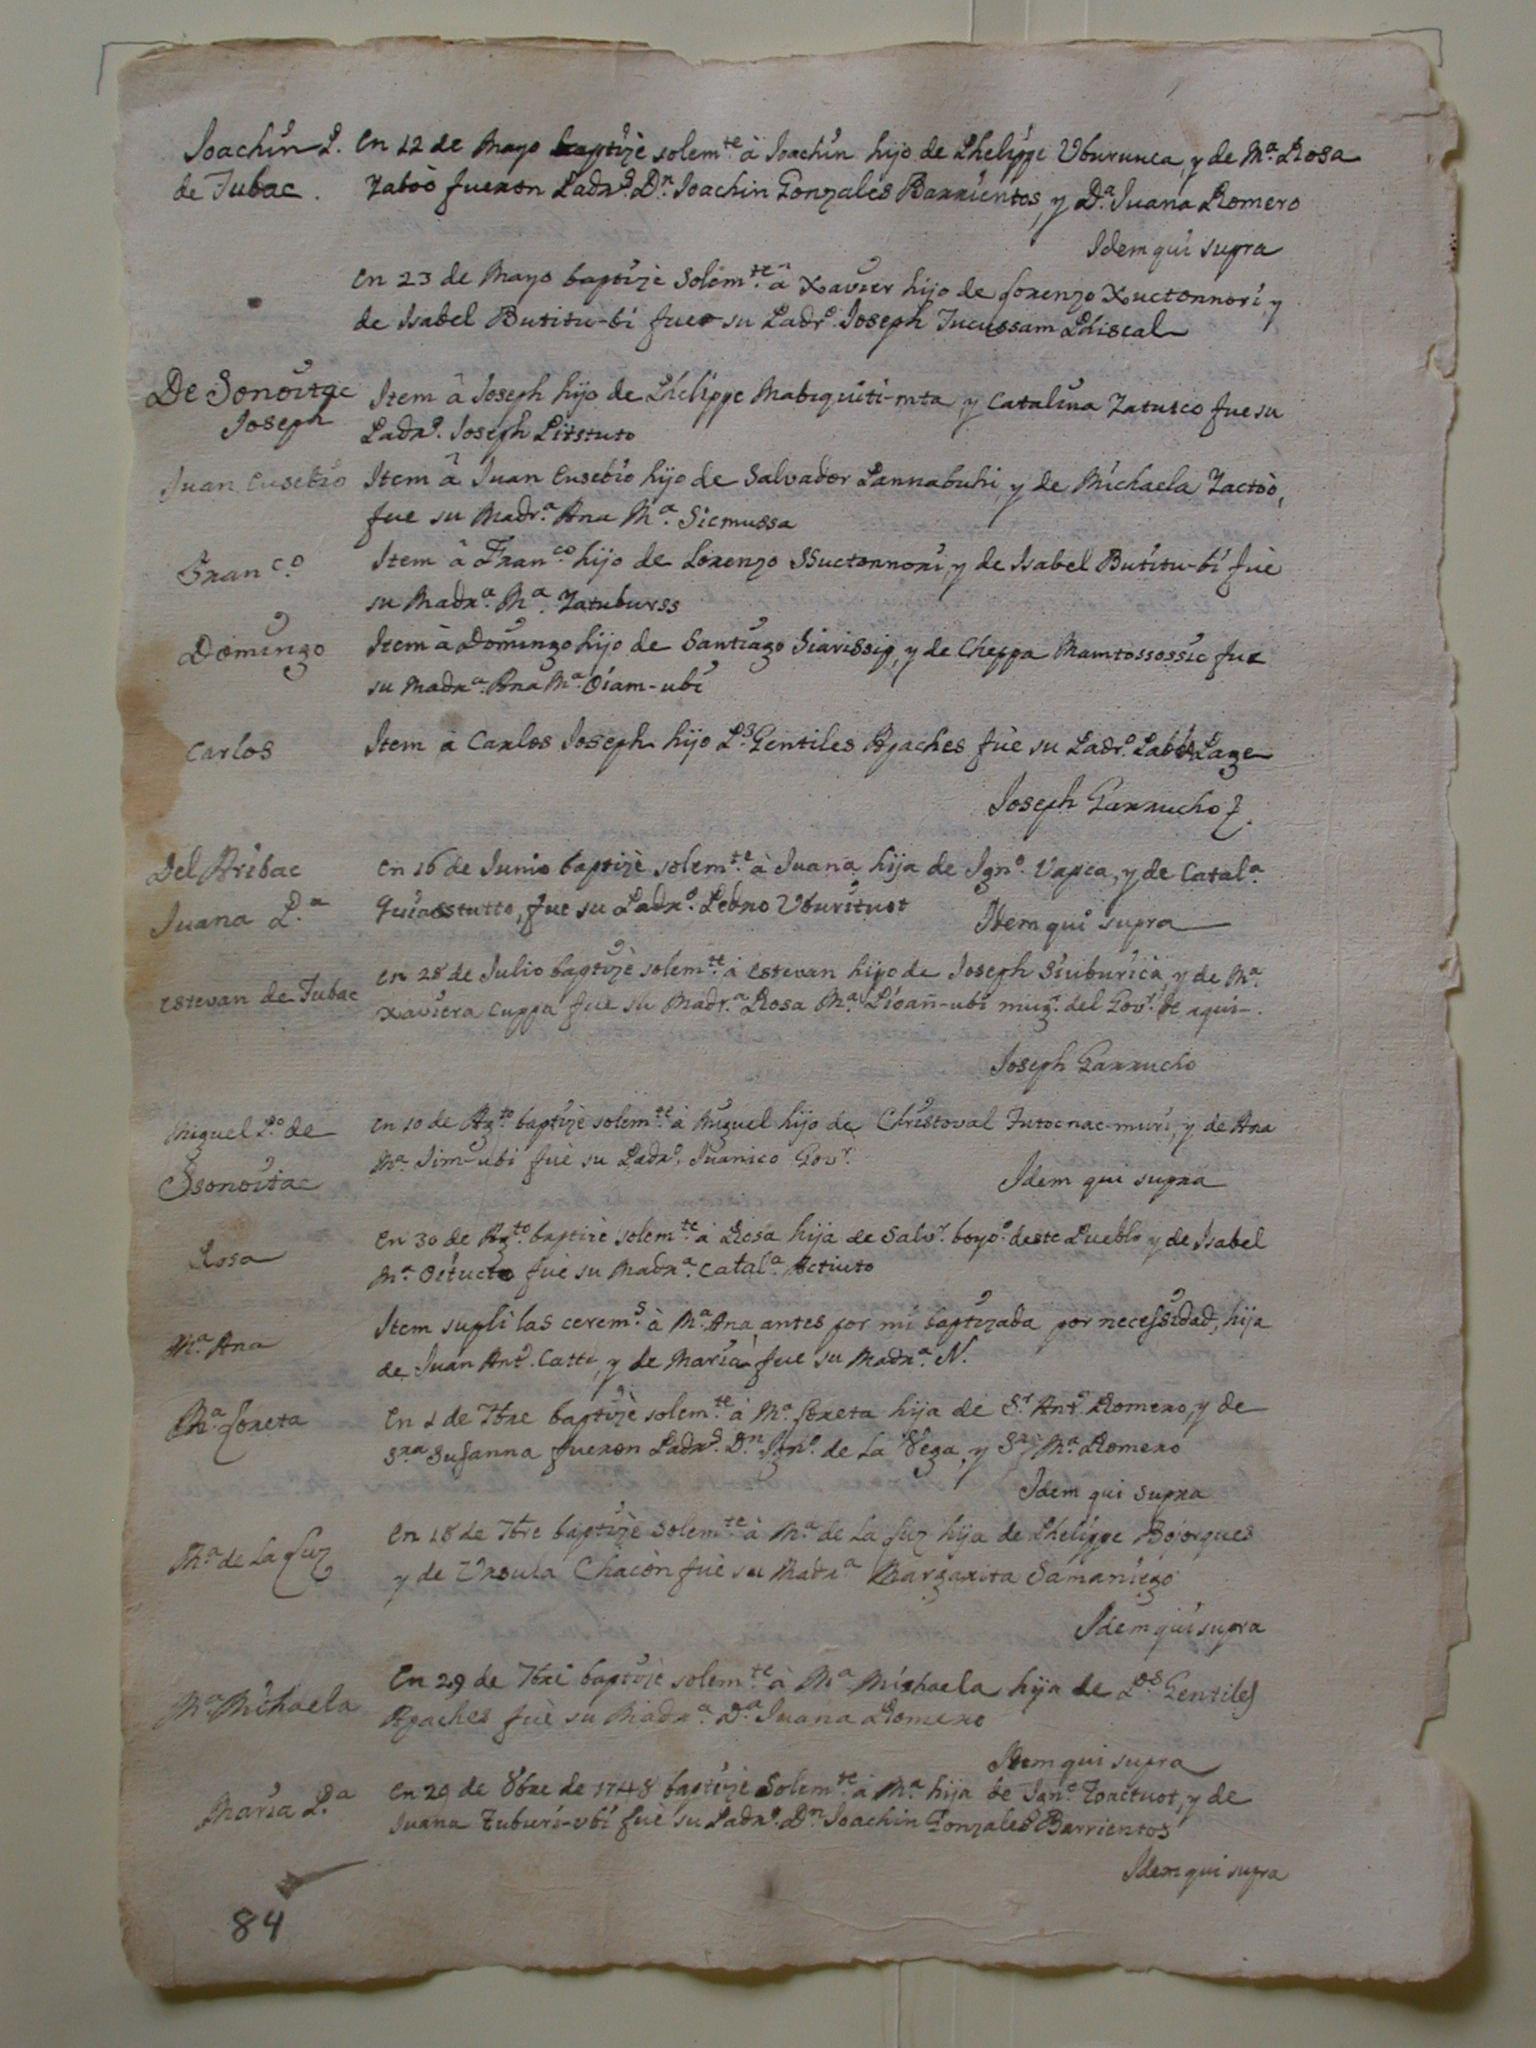 Joachin P. En 12 de Mayo baptizè solem.te à Joachin hijo de Phelippe Uburunca, y de M.a Rosa
de Tubac. Taboò fueron Padr.s D.n Joachin Gonzales Barrientos, y D.a Juana Romero
Idem qui supra
En 23 de Mayo baptizè Solem.te à Xavier hijo de Lorenzo Xuctonnori, y
de Isabel Butitu-bi fue su Padr.o Joseph Tucussam Phiscal
De Sonoitac
Joseph
Item à Joseph hijo de Phelippe Mabiquiti-mta y Catalina Tatusco fue su
Padr.o Joseph Pitstuto
Juan Eusebio Item à Juan Eusebio hijo de Salvador Pannabuhi, y de Michaela Tactoò,
fue su Madr.a Ana M.a Sicmussa
Fran.co Item à Fran.co hijo de Lorenzo SSuctonnori, y de Isabel Butitu-bi fuè
su Madr.a M.a Tatuburss
Domingo Item à Domingo hijo de Santiago Siarissip, y de Cheppa Mamtossossic fue
su Madr.a Ana M.a Oiam-ubi
Carlos Item à Carlos Joseph hijo P.s Gentiles Apaches fuè su Padr.o
Joseph Garrucho
Del Aribac
Juana P.a
En 16 de Junio baptizè solem.te à Juana hija de Ign.o Vapca, y de Catal.a
fue su Padr.o Pedro Uburituot Idem qui supra
Estevan de Tubac En 28 de Julio baptizè solem.te à Estevan hijo de Joseph Siuburica, y de M.a
Xaviera Cuppa fue su Madr.a Rosa M.a Pioañ-ubi mug.r del Gov.r de aqui
Joseph Garrucho
Miguel P.o de
SSonoitac
En 10 de Ag.to baptizè solem.te à Miguel hijo de Christoval Tutocnac-muri, y de Ana
M.a Simi-ubi fuè su Padr.o Juanico Gov.r
Idem qui supra
Rosa En 30 de Ag.to baptizè solem.te à Rosa hija de Salv.r boyo.o deste Pueblo y de Isabel
M.a Oituct fuè su Madr.a Catal.a Actiuto
M.a Ana Item supli las cerem.s à M.a Ana antes por mi baptizada por necessidad, hija
de Juan Ant.o Catti, y de Maria fue su Madr.a N.
M.a Loreta En 1 de 7bre baptizè solem.te à M.a Loreta hija de S.r Ant.o Romero, y de
S.ra Susanna fueron Padr.s D.n Ign.o de la Vega, y S.ra M.a Romero
Idem qui Supra
M.a de la Luz En 18 de 7bre baptizè Solem.te à M.a de la Luz hija de Phelippe Bojorques
y de Ursula Chacòn fuè su Madr.a Margarita Samaniego
Idem qui supra
M.a Michaela En 29 de 7bre baptizè solem.te à M.a Michaela hija de P.s Gentiles
Apaches fuè su Madr.a D.a Juana Romero
Idem qui supra
Maria P.a En 29 de 8bre de 1748 baptizè Solem.te à M.a hija de Ign.o Toactuot, y de
Juana Tuburi-ubi fuè su Padr.o D.n Joachin Gonzales Barrientos
Idem qui supra
84